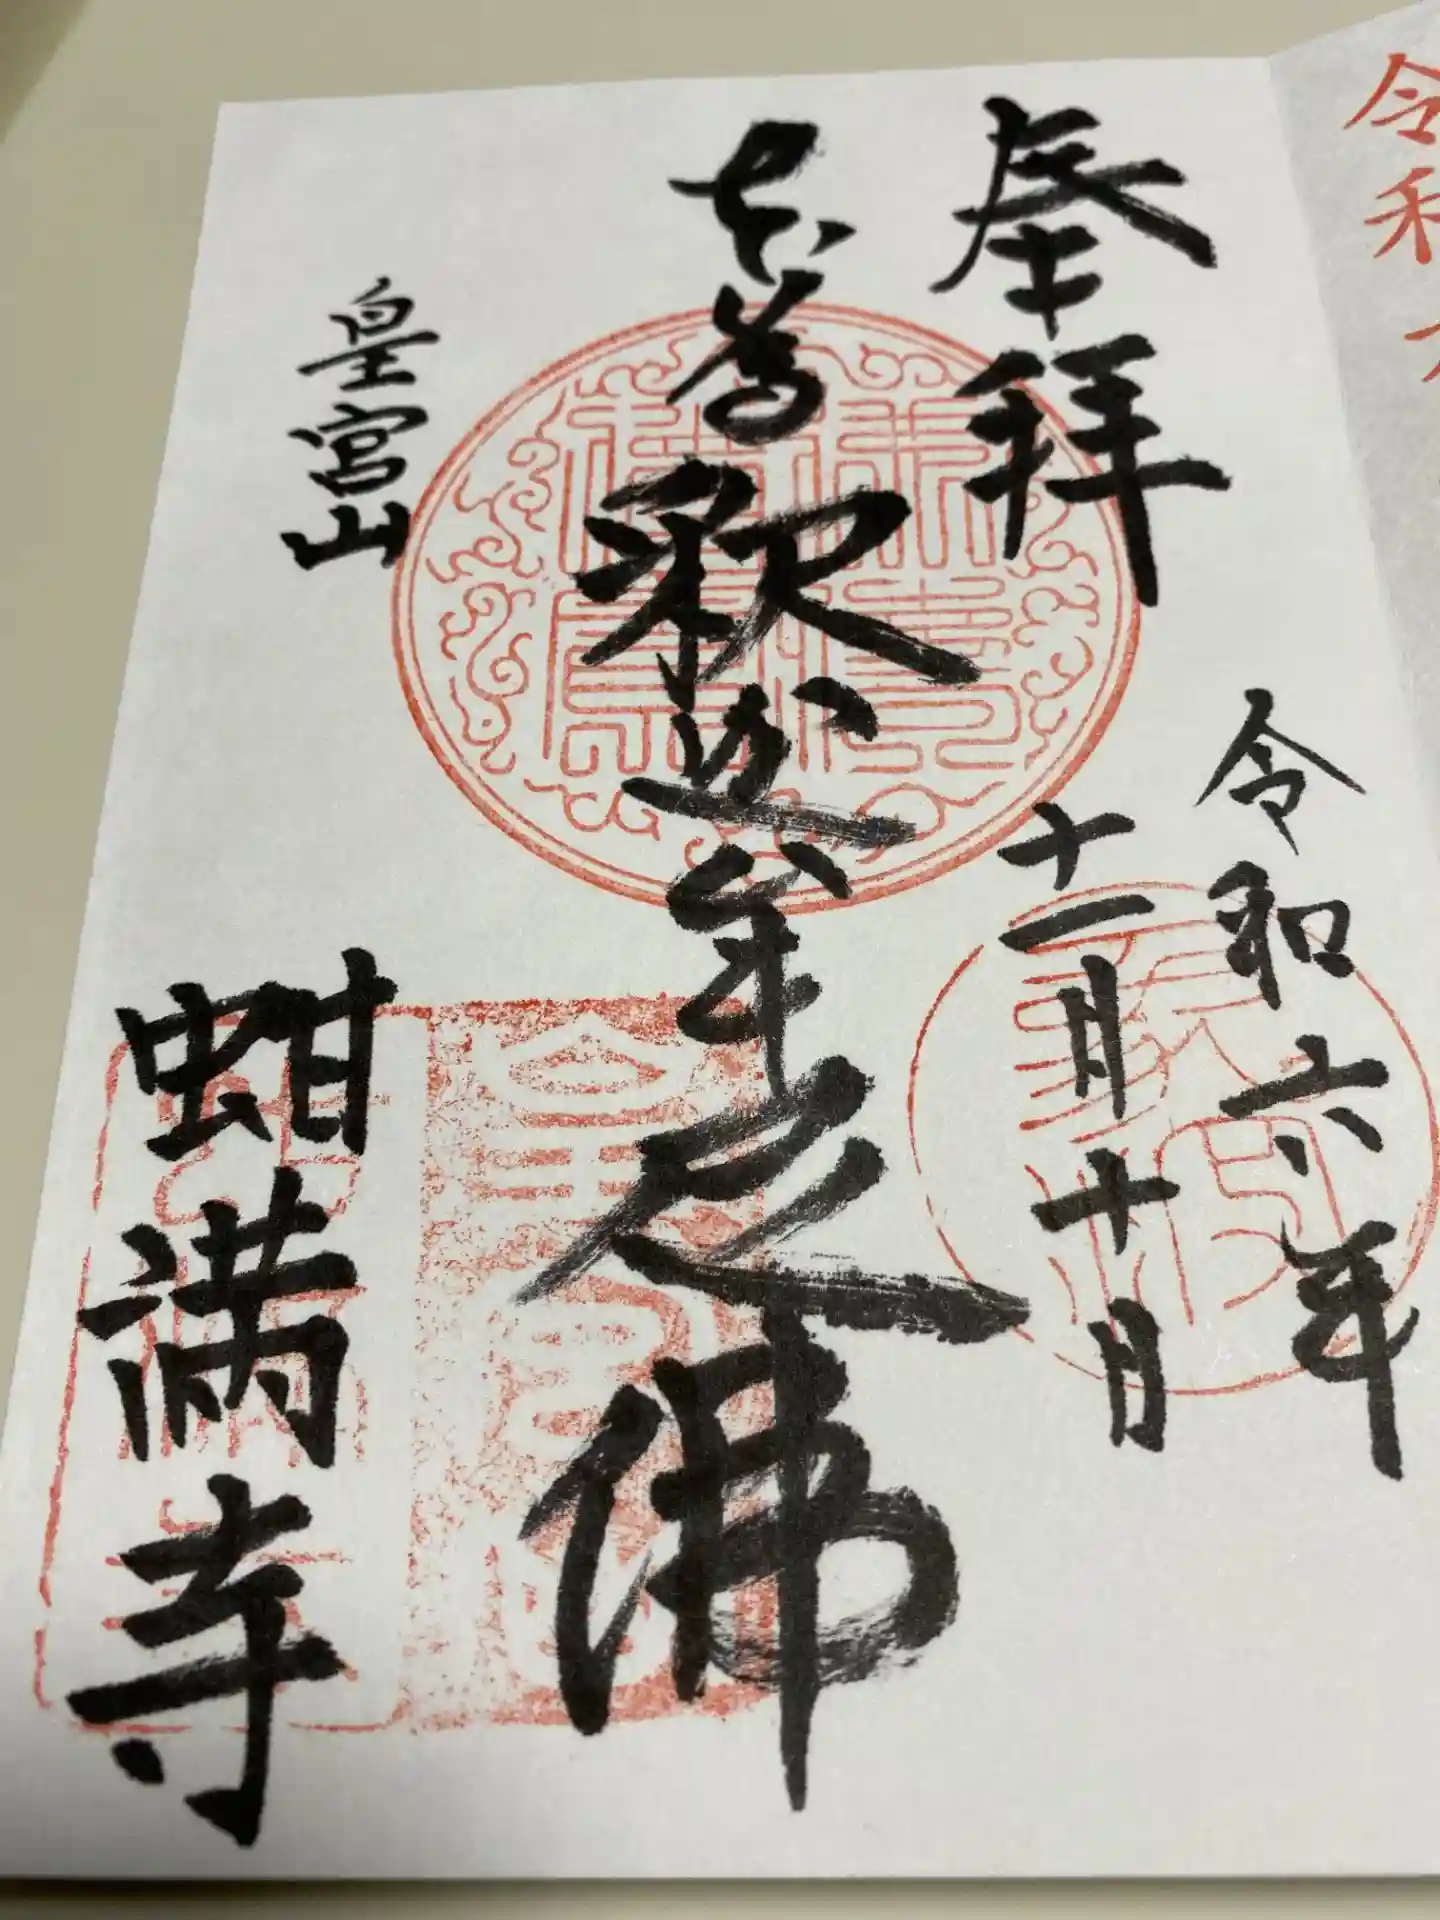 令和
奉拝
令和六年
十一月十日
本尊釈迦牟尼佛
皇宮山
蚶満寺